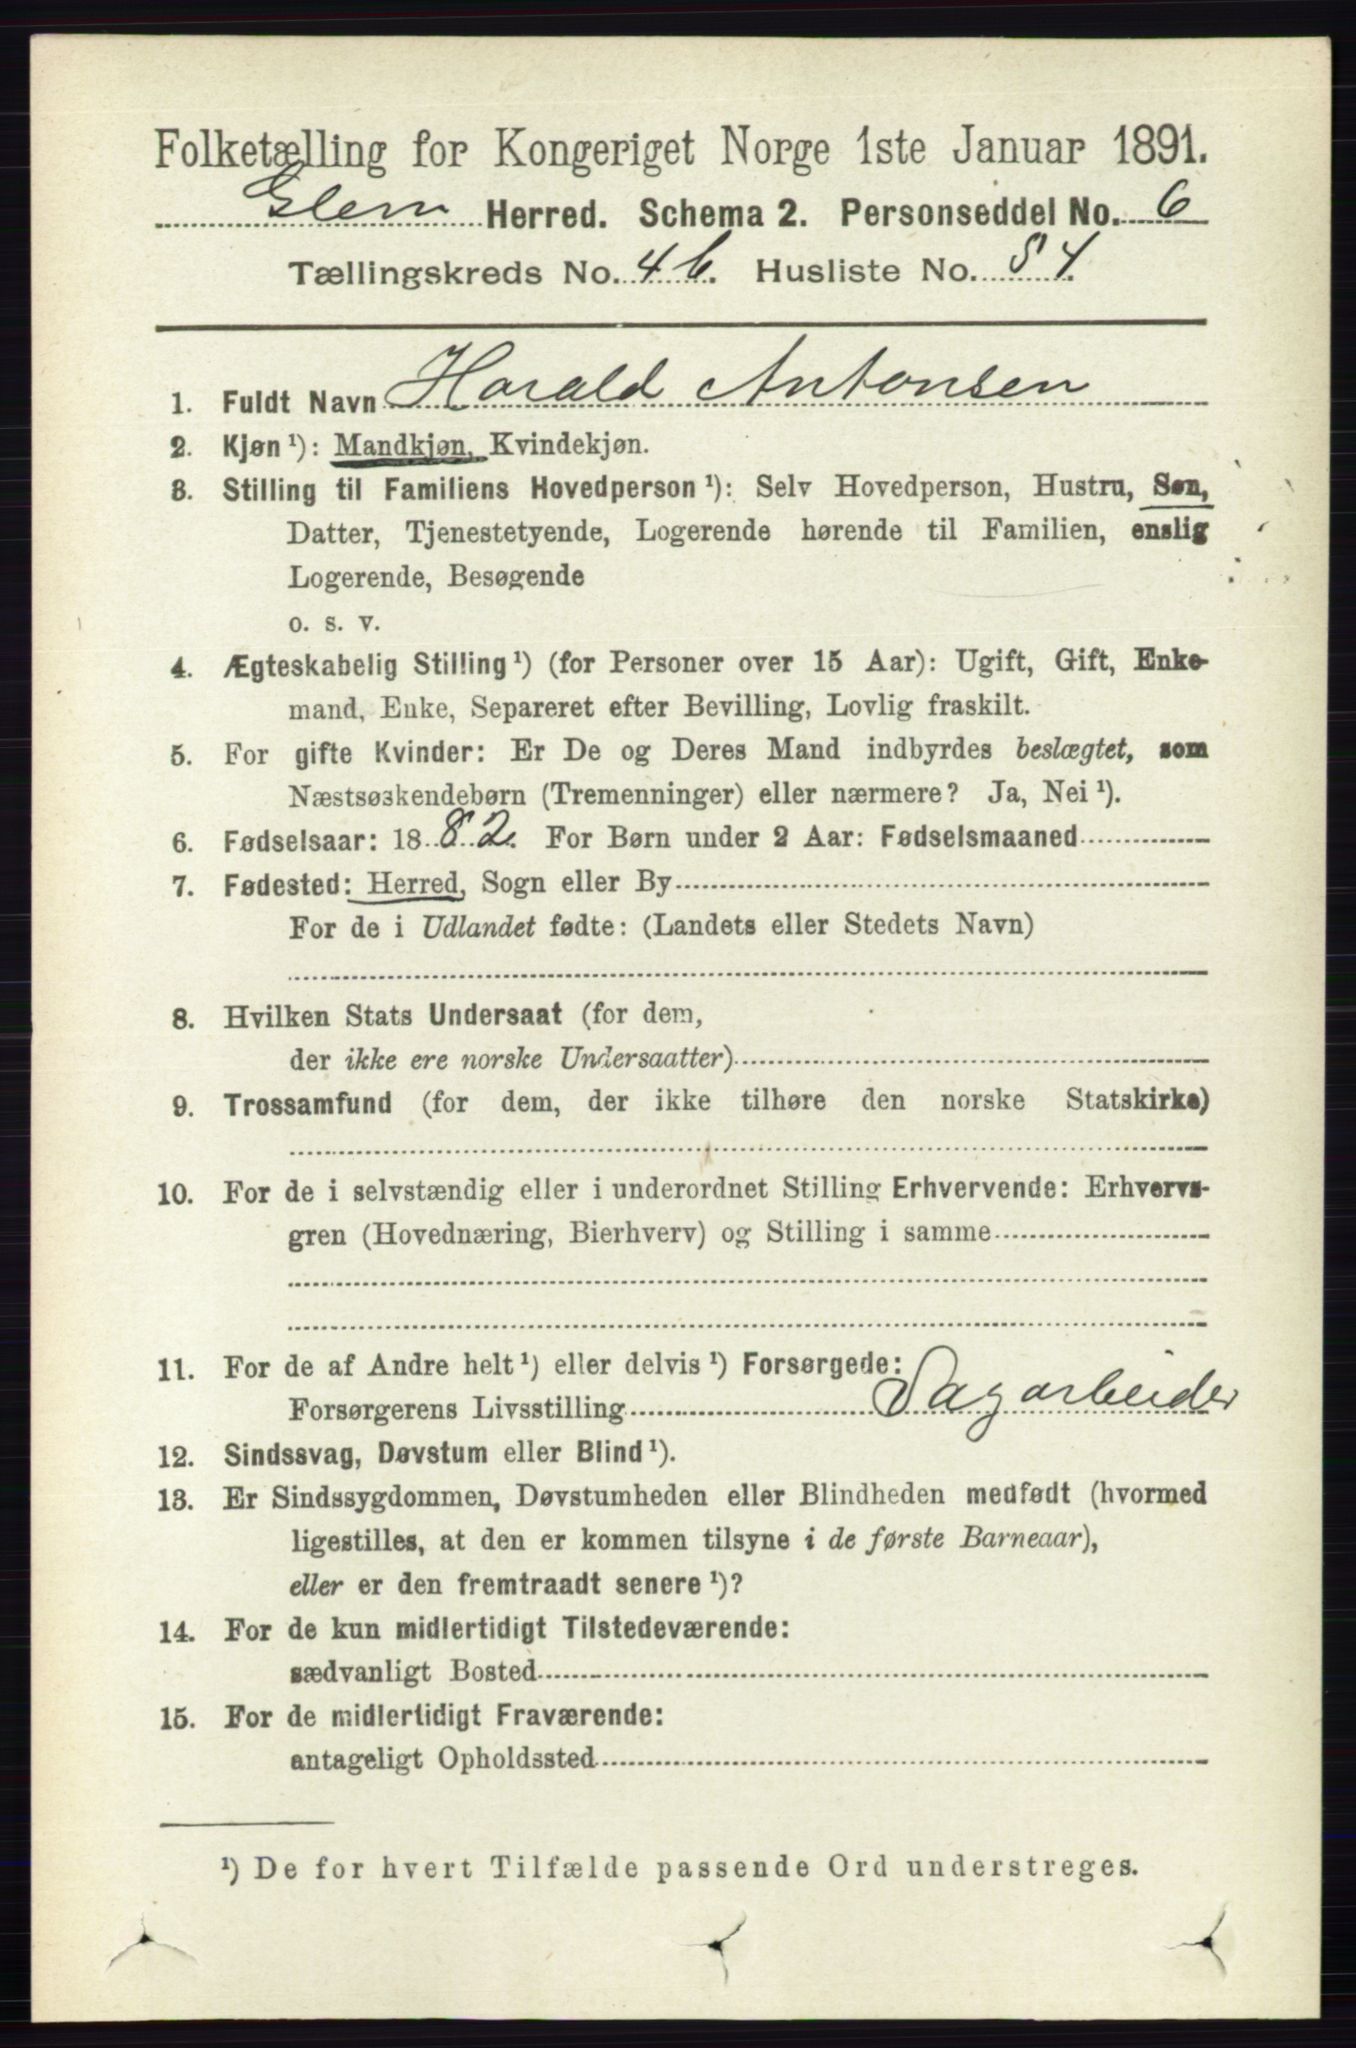 Folketælling for Kongeriget Norge 1ste Januar 1891.
Glem Herred. Schema 2. Personseddel No. 6
Tællingskreds No. 4 b. Husliste No. 54.
1. Fuldt Navn Harald Antonsen
2. Kjøn ¹): Mandkjøn, Kvindekjøn.
3. Stilling til Familiens Hovedperson ¹): Selv Hovedperson, Hustru, Søn,
Datter, Tjenestetyende, Logerende hørende til Familien, enslig
Logerende, Besøgende
o. s. v.
4. Ægteskabelig Stilling ¹) (for Personer over 15 Aar): Ugift, Gift, Enke-
mand, Enke, Separeret efter Bevilling, Lovlig fraskilt.
5. For gifte Kvinder: Er De og Deres Mand indbyrdes beslægtet, som
Næstsøskendebørn (Tremenninger) eller nærmere? Ja, Nei ¹).
6. Fødselsaar: 18 82. For Børn under 2 Aar: Fødselsmaaned
7. Fødested: Herred, Sogn eller By
For de i Udlandet fødte: (Landets eller Stedets Navn)
8. Hvilken Stats Undersaat (for dem,
der ikke ere norske Undersaatter)
9. Trossamfund (for dem, der ikke tilhøre den norske Statskirke)
10. For de i selvstændig eller i underordnet Stilling Erhvervende: Erhvervs-
gren (Hovednæring, Bierhverv) og Stilling i samme
11. For de af Andre helt ¹) eller delvis ¹) Forsørgede:
Forsørgerens Livsstilling Sagarbeider
12. Sindssvag, Døvstum eller Blind ¹).
13. Er Sindssygdommen, Døvstumheden eller Blindheden medfødt (hvormed
ligestilles, at den er kommen tilsyne i de første Barneaar),
eller er den fremtraadt senere ¹)?
14. For de kun midlertidigt Tilstedeværende:
sædvanligt Bosted
15. For de midlertidigt Fraværende:
antageligt Opholdssted
¹) De for hvert Tilfælde passende Ord understreges.